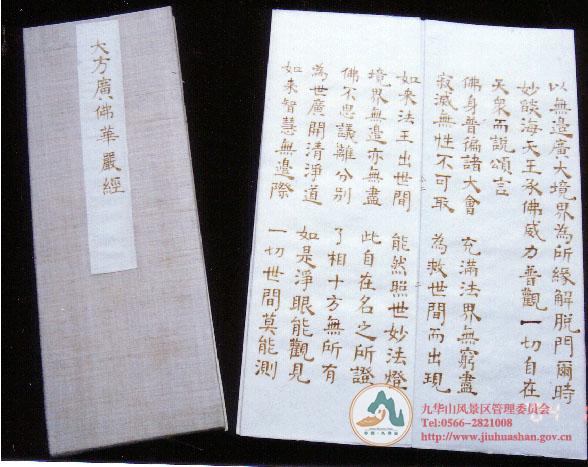 大方廣佛華嚴經
以無邊廣大境界為所緣解脫門爾時
妙燄海天王承佛威力普觀一切自在
天衆而說頌言
佛身普徧諸大會 充滿法界無窮盡
寂滅無性不可取 為救世間而出現
如来法王出世間 能然照世妙法燈
境界無邊亦無盡 此自在名之所證
佛不思議離分別 了相十方無所有
為世廣開清淨道 如是淨眼能觀見
如来智慧無邊際 一切世間莫能測
九华山风景区管理委员会
Tel:0566-2821008
http://www.jiuhuashan.gov.cn